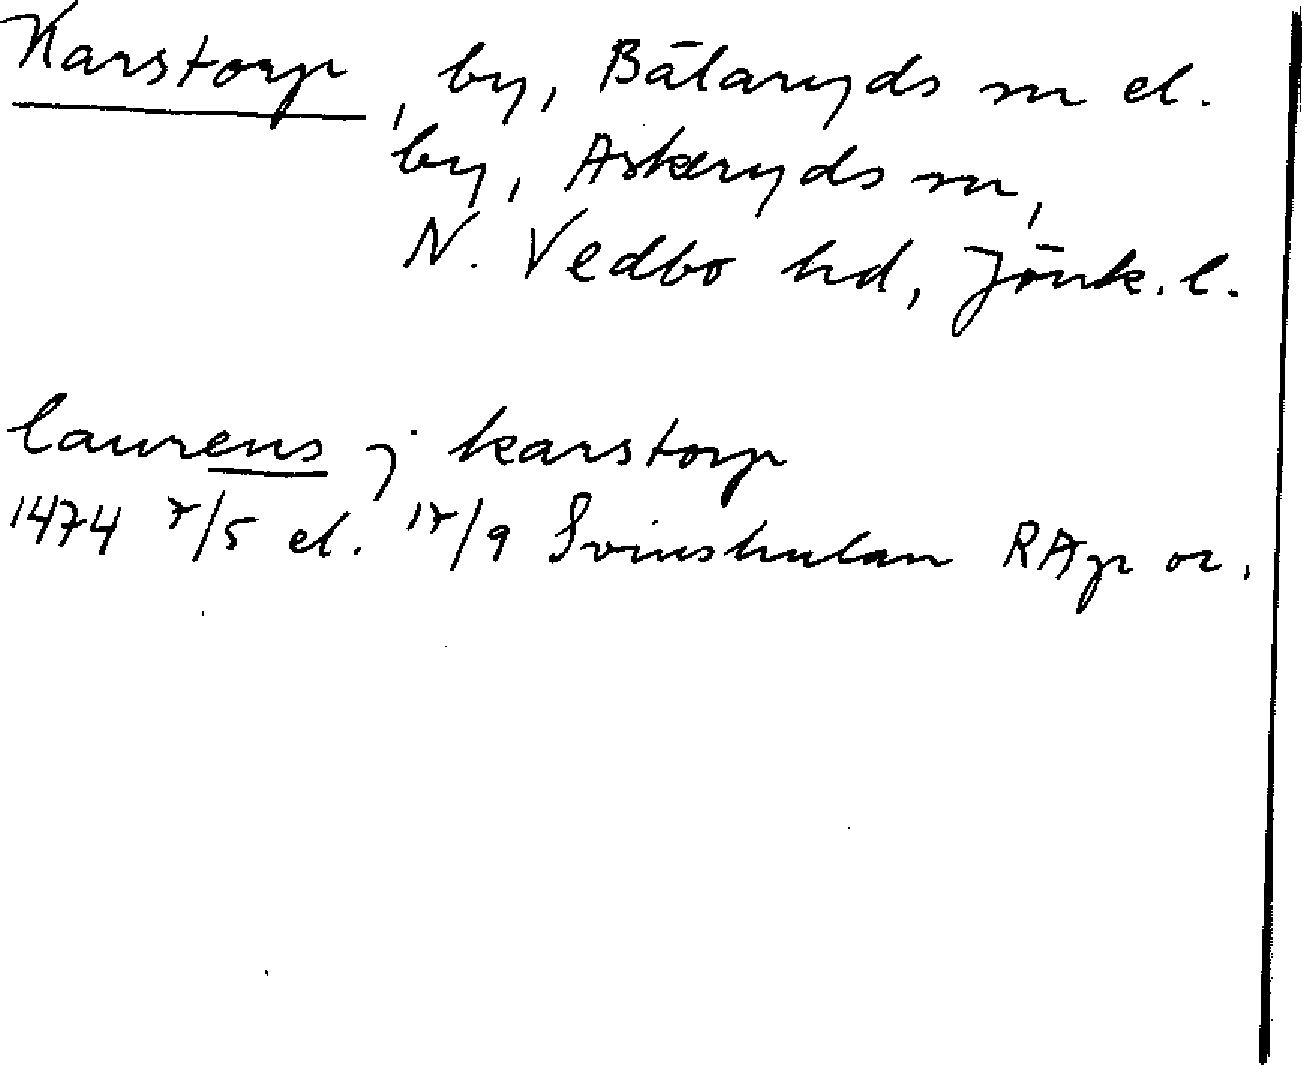 Karstorp, by, Bälaryds sn el.
by, Askeryds sn,
N. Vedbo hd, Jönk. l.
laurens j karstorp
1474 7/5 el. 17/9 Svinshulan RAp or.